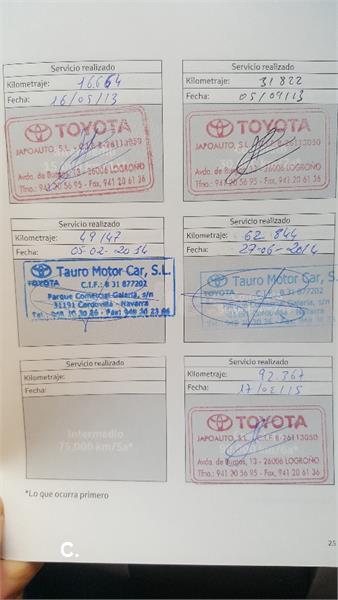 Servicio realizado
Kilometraje: 16664
Fecha: 16/05/13
TOYOTA
JAPOAUTO, S.L. - C.I.F. B-26113050
Avda. de Burgos, 13 - 26006 LOGROÑO
Tfno.: 941 20 56 95 - Fax, 941 20 61 36
Servicio realizado
Kilometraje: 31822
Fecha: 05/09/13
TOYOTA
JAPOAUTO, S.L. C.I.F. B-26113050
Avda. de Burgos, 13 - 26006 LOGROÑO
Tfno.: 941 20 56 95 - Fax, 941 20 61 36
Servicio realizado
Kilometraje: 49147
Fecha: 05-02-2014
TOYOTA
Tauro Motor Car, S.L.
C.I.F.: B 31 877202
Parque Comercial Galaria, s/n
31191 Cordovilla - Navarra
Servicio realizado
Kilometraje: 62.844
Fecha: 27-06-2014
TOYOTA
Tauro Motor Car, S.L.
C.I.F.: B 31 877202
Parque Comercial Galaria, s/n
31191 Cordovilla - Navarra
Servicio realizado
Kilometraje:
Fecha:
Intermedio
75.000 km/5a*
Servicio realizado
Kilometraje: 92.367
Fecha: 17/02/15
TOYOTA
JAPOAUTO, S.L. C.I.F. B-26113050
Avda. de Burgos, 13 - 26006 LOGROÑO
Tfno.: 941 20 56 95 - Fax, 941 20 61 36
*Lo que ocurra primero
25
C.